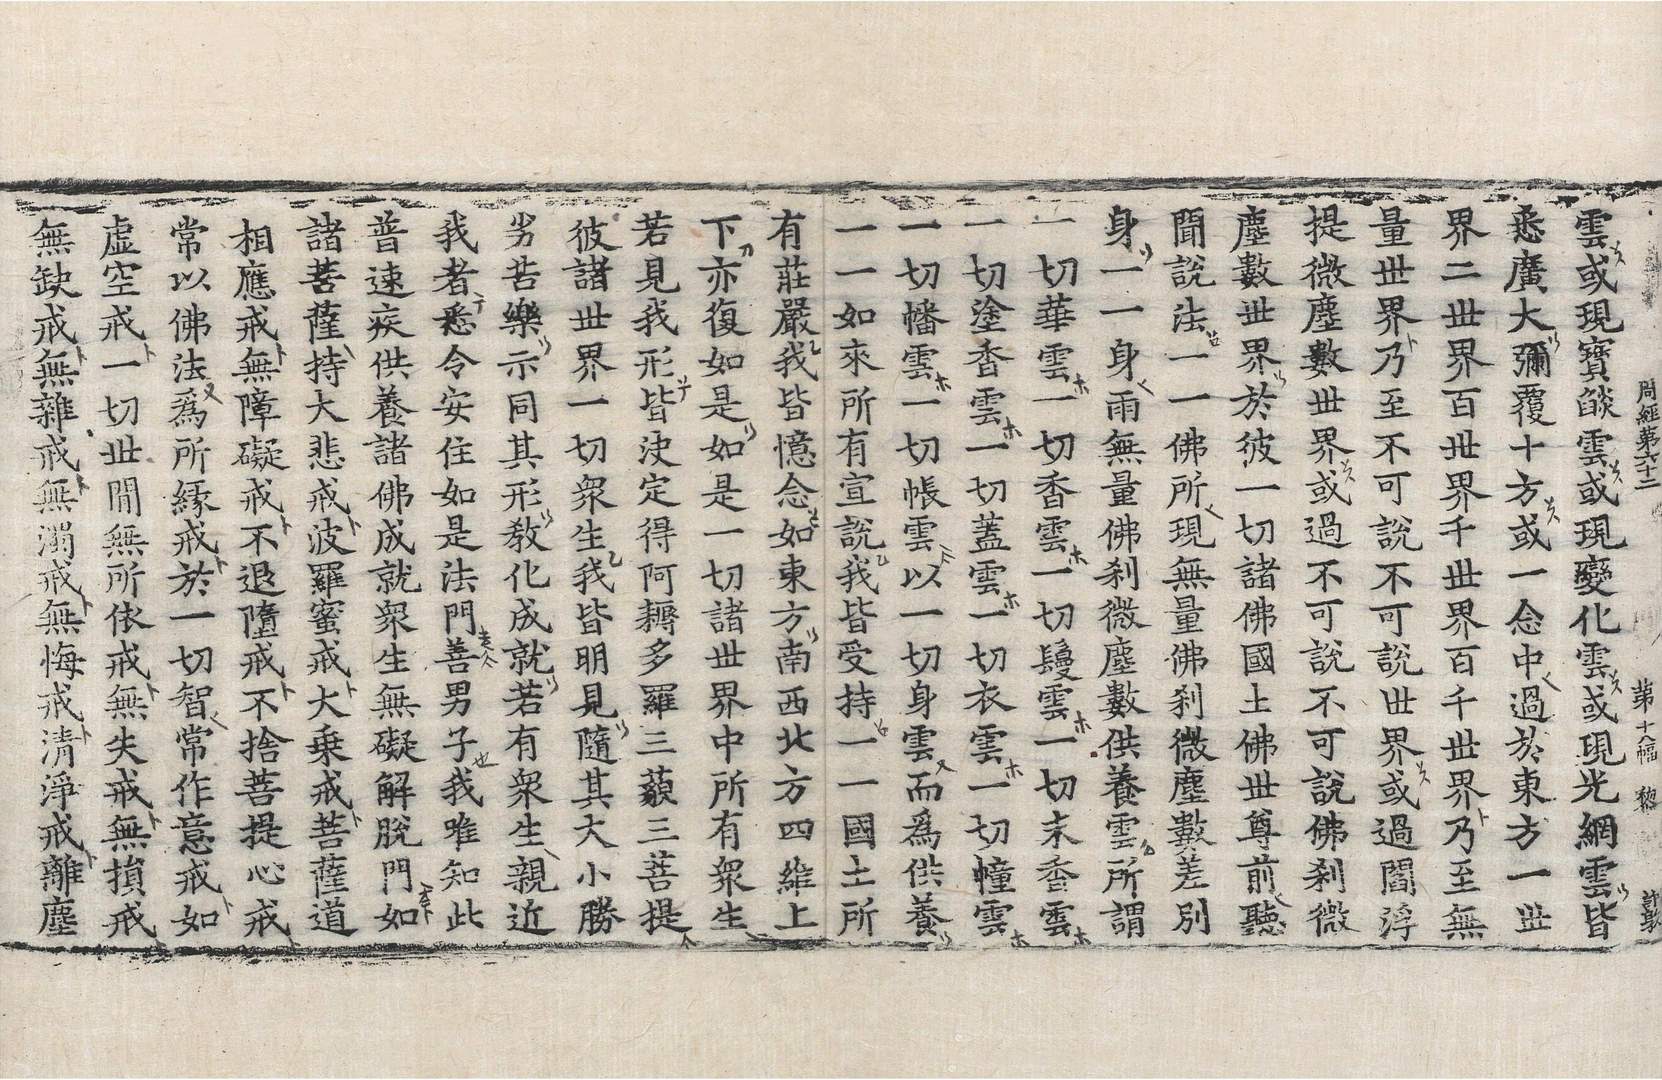 周經第六十二 第十八幅 黎
雲或現寶焰雲或現變化雲或現光網雲皆
悉廣大彌覆十方或一念中過於東方一世
界二世界百世界千世界百千世界乃至無
量世界乃至不可說不可說世界或過閻浮
提微塵數世界或過不可說不可說佛剎微
塵數世界於彼一切諸佛國土佛世尊前聽
聞說法一一佛所現無量佛剎微塵數差別
身一一身雨無量佛剎微塵數供養雲所謂
一切華雲一切香雲一切鬘雲一切末香雲
一切塗香雲一切蓋雲一切衣雲一切幢雲
一切幡雲一切帳雲以一切身雲而為供養
一一如來所有宣說我皆受持一一國土所
有莊嚴我皆憶念如東方南西北方四維上
下亦復如是如是一切諸世界中所有眾生
若見我形皆決定得阿耨多羅三藐三菩提
彼諸世界一切眾生我皆明見隨其大小勝
劣苦樂示同其形教化成就若有眾生親近
我者悉令安住如是法門善男子我唯知此
普速疾供養諸佛成就眾生無礙解脫門如
諸菩薩持大悲戒波羅蜜戒大乗戒菩薩道
相應戒無障礙戒不退墮戒不捨菩提心戒
常以佛法爲所緣戒於一切智常作意戒如
虛空戒一切世間無所依戒無失戒無損戒
無缺戒無雜戒無濁戒無悔戒清淨戒離塵